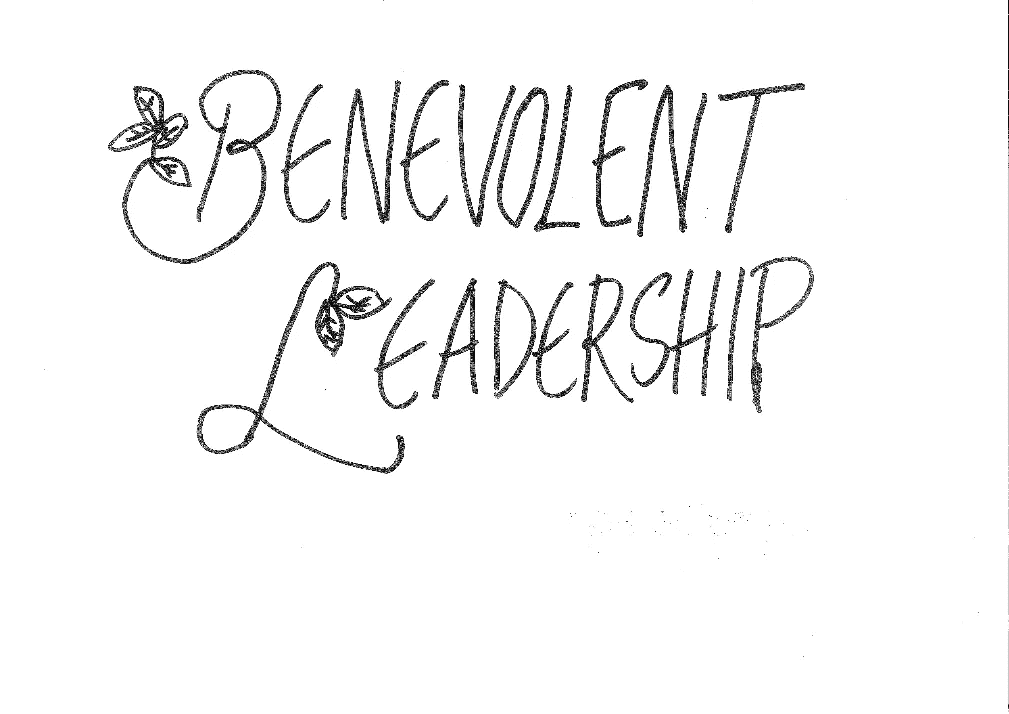 BENEVOLENT
LEADERSHIP